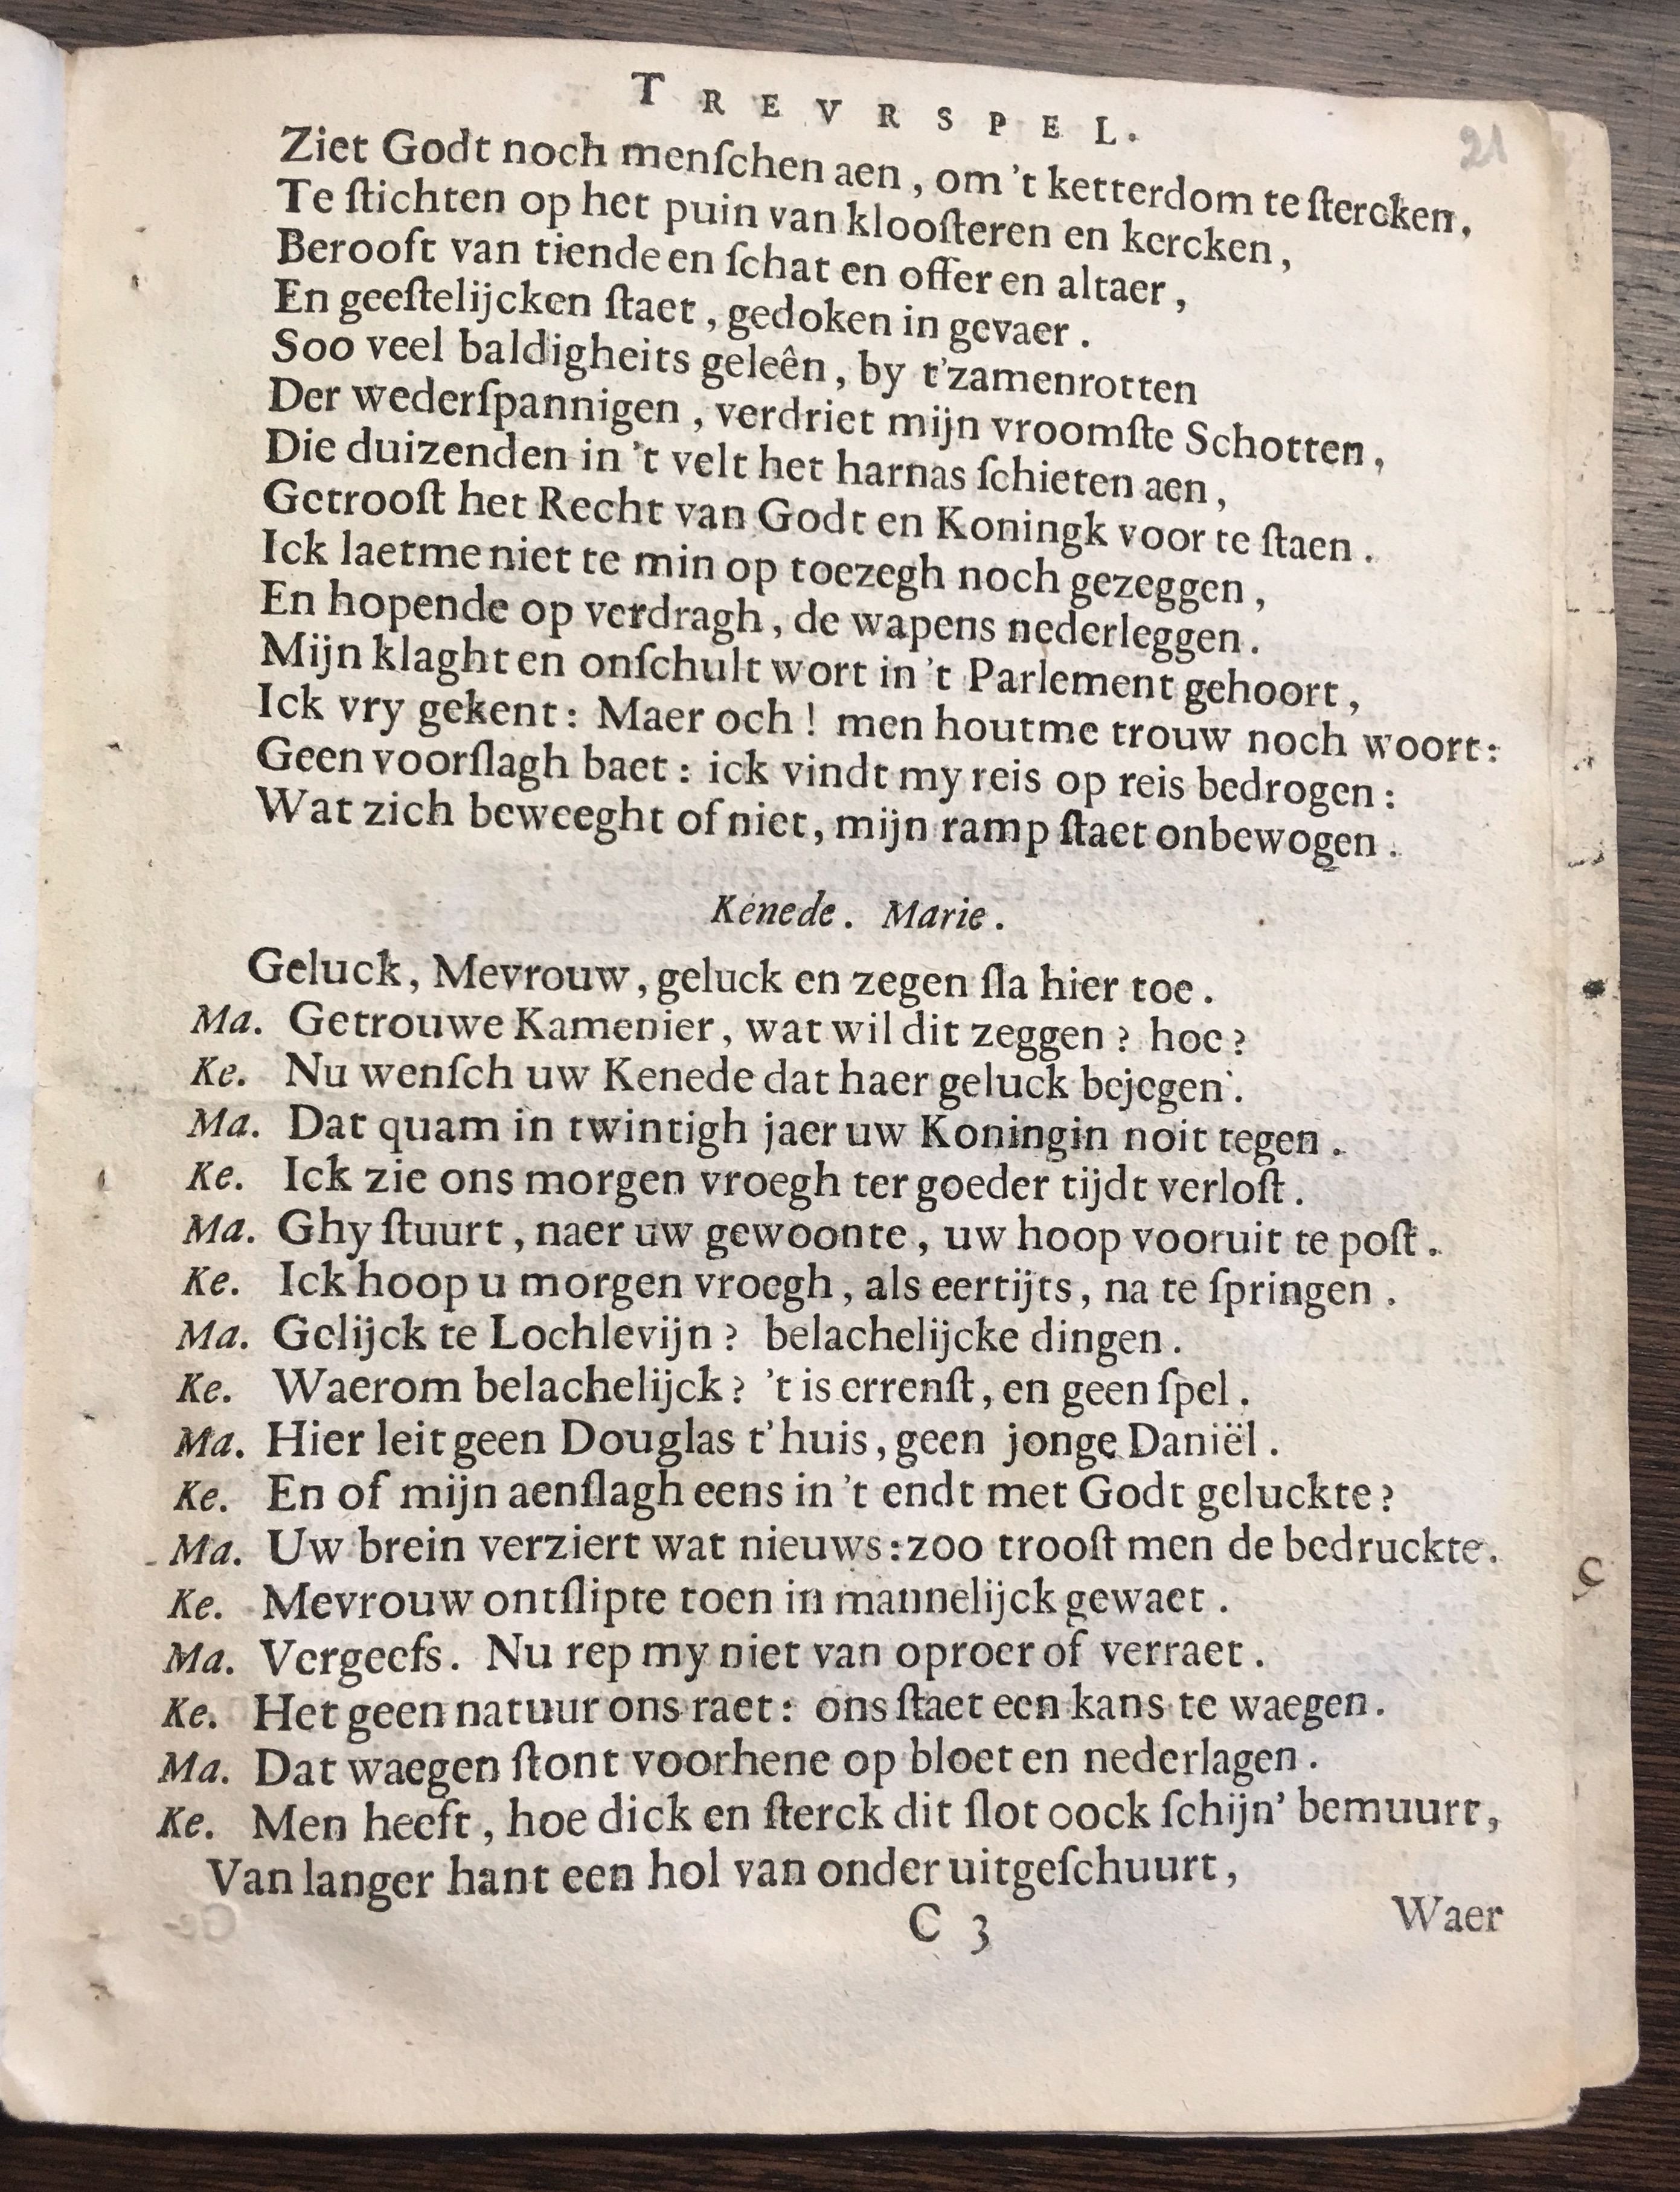 TREVRSPEL.
21
Ziet Godt noch menſchen aen, om 't ketterdom te ſtercken,
Te ſtichten op het puin van klooſteren en kercken,
Berooft van tiende en ſchat en offer en altaer,
En geeſtelijcken ſtaet, gedoken in gevaer.
Soo veel baldigheits geleên, by t'zamenrotten
Der wederſpannigen, verdriet mijn vroomſte Schotten,
Die duizenden in 't velt het harnas ſchieten aen,
Getrooſt het Recht van Godt en Koningk voor te ſtaen.
Ick laetme niet te min op toezegh noch gezeggen,
En hopende op verdragh, de wapens nederleggen.
Mijn klaght en onſchult wort in 't Parlement gehoort,
Ick vry gekent: Maer och! men houtme trouw noch woort:
Geen voorſlagh baet: ick vindt my reis op reis bedrogen:
Wat zich beweeght of niet, mijn ramp ſtaet onbewogen.
Kenede. Marie.
Geluck, Mevrouw, geluck en zegen ſla hier toe.
Ma. Getrouwe Kamenier, wat wil dit zeggen? hoe?
Ke. Nu wenſch uw Kenede dat haer geluck bejegen'.
Ma. Dat quam in twintigh jaer uw Koningin noit tegen.
Ke. Ick zie ons morgen vroegh ter goeder tijdt verloſt.
Ma. Ghy ſtuurt, naer uw gewoonte, uw hoop vooruit te poſt.
Ke. Ick hoop u morgen vroegh, als eertijts, na te ſpringen.
Ma. Gelijck te Lochlevijn? belachelijcke dingen.
Ke. Waerom belachelijck? 't is errenſt, en geen ſpel.
Ma. Hier leit geen Douglas t'huis, geen jonge Daniël.
Ke. En of mijn aenſlagh eens in 't endt met Godt geluckte?
Ma. Uw brein verziert wat nieuws: zoo trooſt men de bedruckte.
Ke. Mevrouw ontſlipte toen in mannelijck gewaet.
Ma. Vergeefs. Nu rep my niet van oproer of verraet.
Ke. Het geen natuur ons raet: ons ſtaet een kans te waegen.
Ma. Dat waegen ſtont voorhene op bloet en nederlagen.
Ke. Men heeft, hoe dick en ſterck dit ſlot oock ſchijn' bemuurt,
Van langer hant een hol van onder uitgeſchuurt,
C 3
Waer